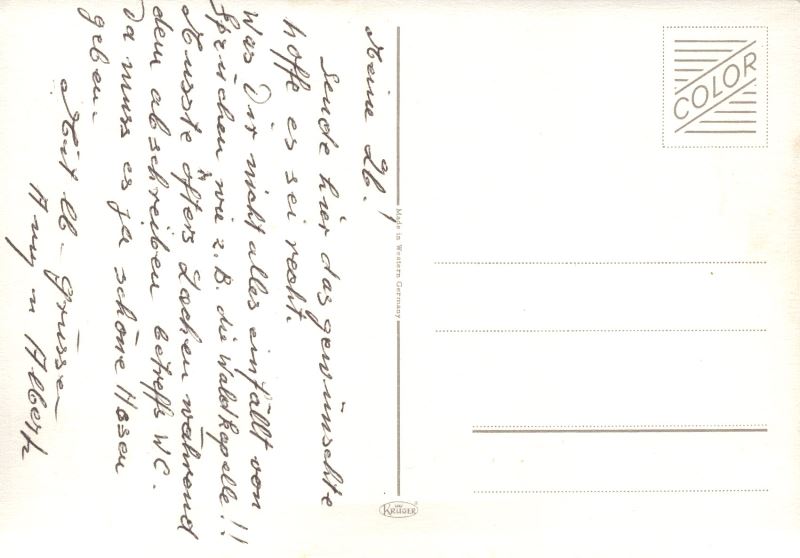 Meine Lb.!
Sende hier das gewünschte
hoffe es sei recht.
Was Dir nicht alles einfällt von
Sprüchen wie z.B. die Waldkapelle!!
Musste öfters Lachen während
dem abschreiben betreffs WC.
Da muss es ja schöne Hosen
geben.
Mit lb. Grüsse
Anny u Albert
Made in Western Germany
KRÜGER
COLOR